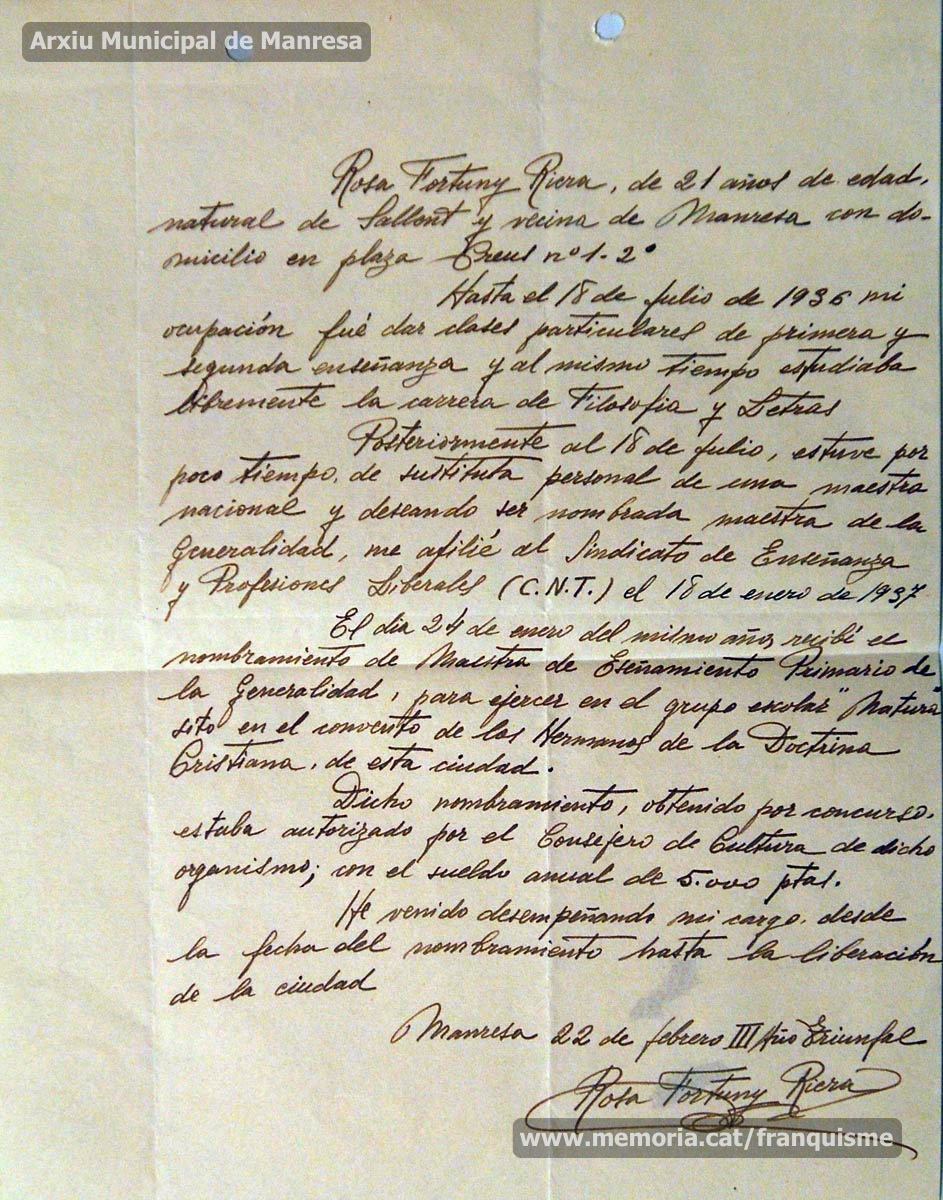 Arxiu Municipal de Manresa
Rosa Fortuny Riera, de 21 años de edad,
natural de Sallent y vecina de Manresa con do-
micilio en plaza Creus nº 1 - 2º
Hasta el 18 de Julio de 1936 mi
ocupación fué dar clases particulares de primera y
segunda enseñanza y al mismo tiempo estudiaba
libremente la carrera de Filosofia y Letras
Posteriormente al 18 de Julio, estuve por
poco tiempo, de sustituta personal de una maestra
nacional y deseando ser nombrada maestra de la
Generalidad, me afilié al Sindicato de Enseñanza
y Profesiones Liberales (C.N.T.) el 18 de enero de 1937
El dia 24 de enero del mismo año, recibí el
nombramiento de Maestra de Eseñamiento Primario de
la Generalidad, para ejercer en el grupo escolar "Natura"
sito en el convento de los Hermanos de la Doctrina
Cristiana, de esta ciudad.
Dicho nombramiento, obtenido por concurso,
estaba autorizado por el Consejero de Cultura de dicho
organismo; con el sueldo anual de 5.000 ptas.
He venido desempeñando mi cargo, desde
la fecha del nombramiento hasta la liberación
de la ciudad
Manresa 22 de febrero III Año Triunfal
Rosa Fortuny Riera
www.memoria.cat/franquisme